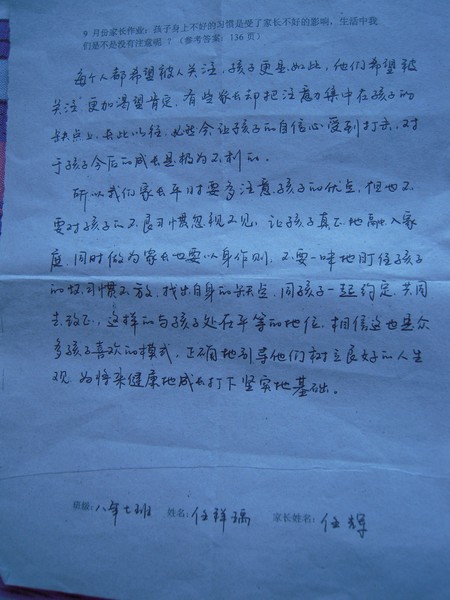 9 月份家长作业：孩子身上不好的习惯是受了家长不好的影响，生活中我
们是不是没有注意呢？（参考答案：136 页）
每个人都希望被人关注，孩子更是如此，他们希望被
关注更加渴望肯定，有些家长却把注意力集中在孩子的
缺点上，长此以往，必然会让孩子的自信心受到打击，对
于孩子今后的成长是极为不利的。
所以我们家长平日时要多注意孩子的优点，但也不
要对孩子的不良习惯忽视不见，让孩子真正地融入家
庭，同时做为家长也要以身作则，不要一味地盯住孩子
的坏习惯不放，找出自身的缺点，同孩子一起约定，共同
去改正，这样的与孩子处在平等的地位，相信这也是众
多孩子喜欢的模式，正确地引导他们树立良好的人生
观，为将来健康地成长打下坚实地基础。
班级：八年七班 姓名：任祥瑞 家长姓名：任辉